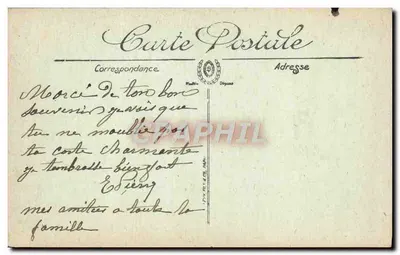 Carte Postale
Correspondance
Adresse
Morcé de ton bon
souvenir je vois que
tu ne moublie pas
ta carte charmante
je tembrasse bien fort
mes amitiés a toute la
famille
CARTAPHIL